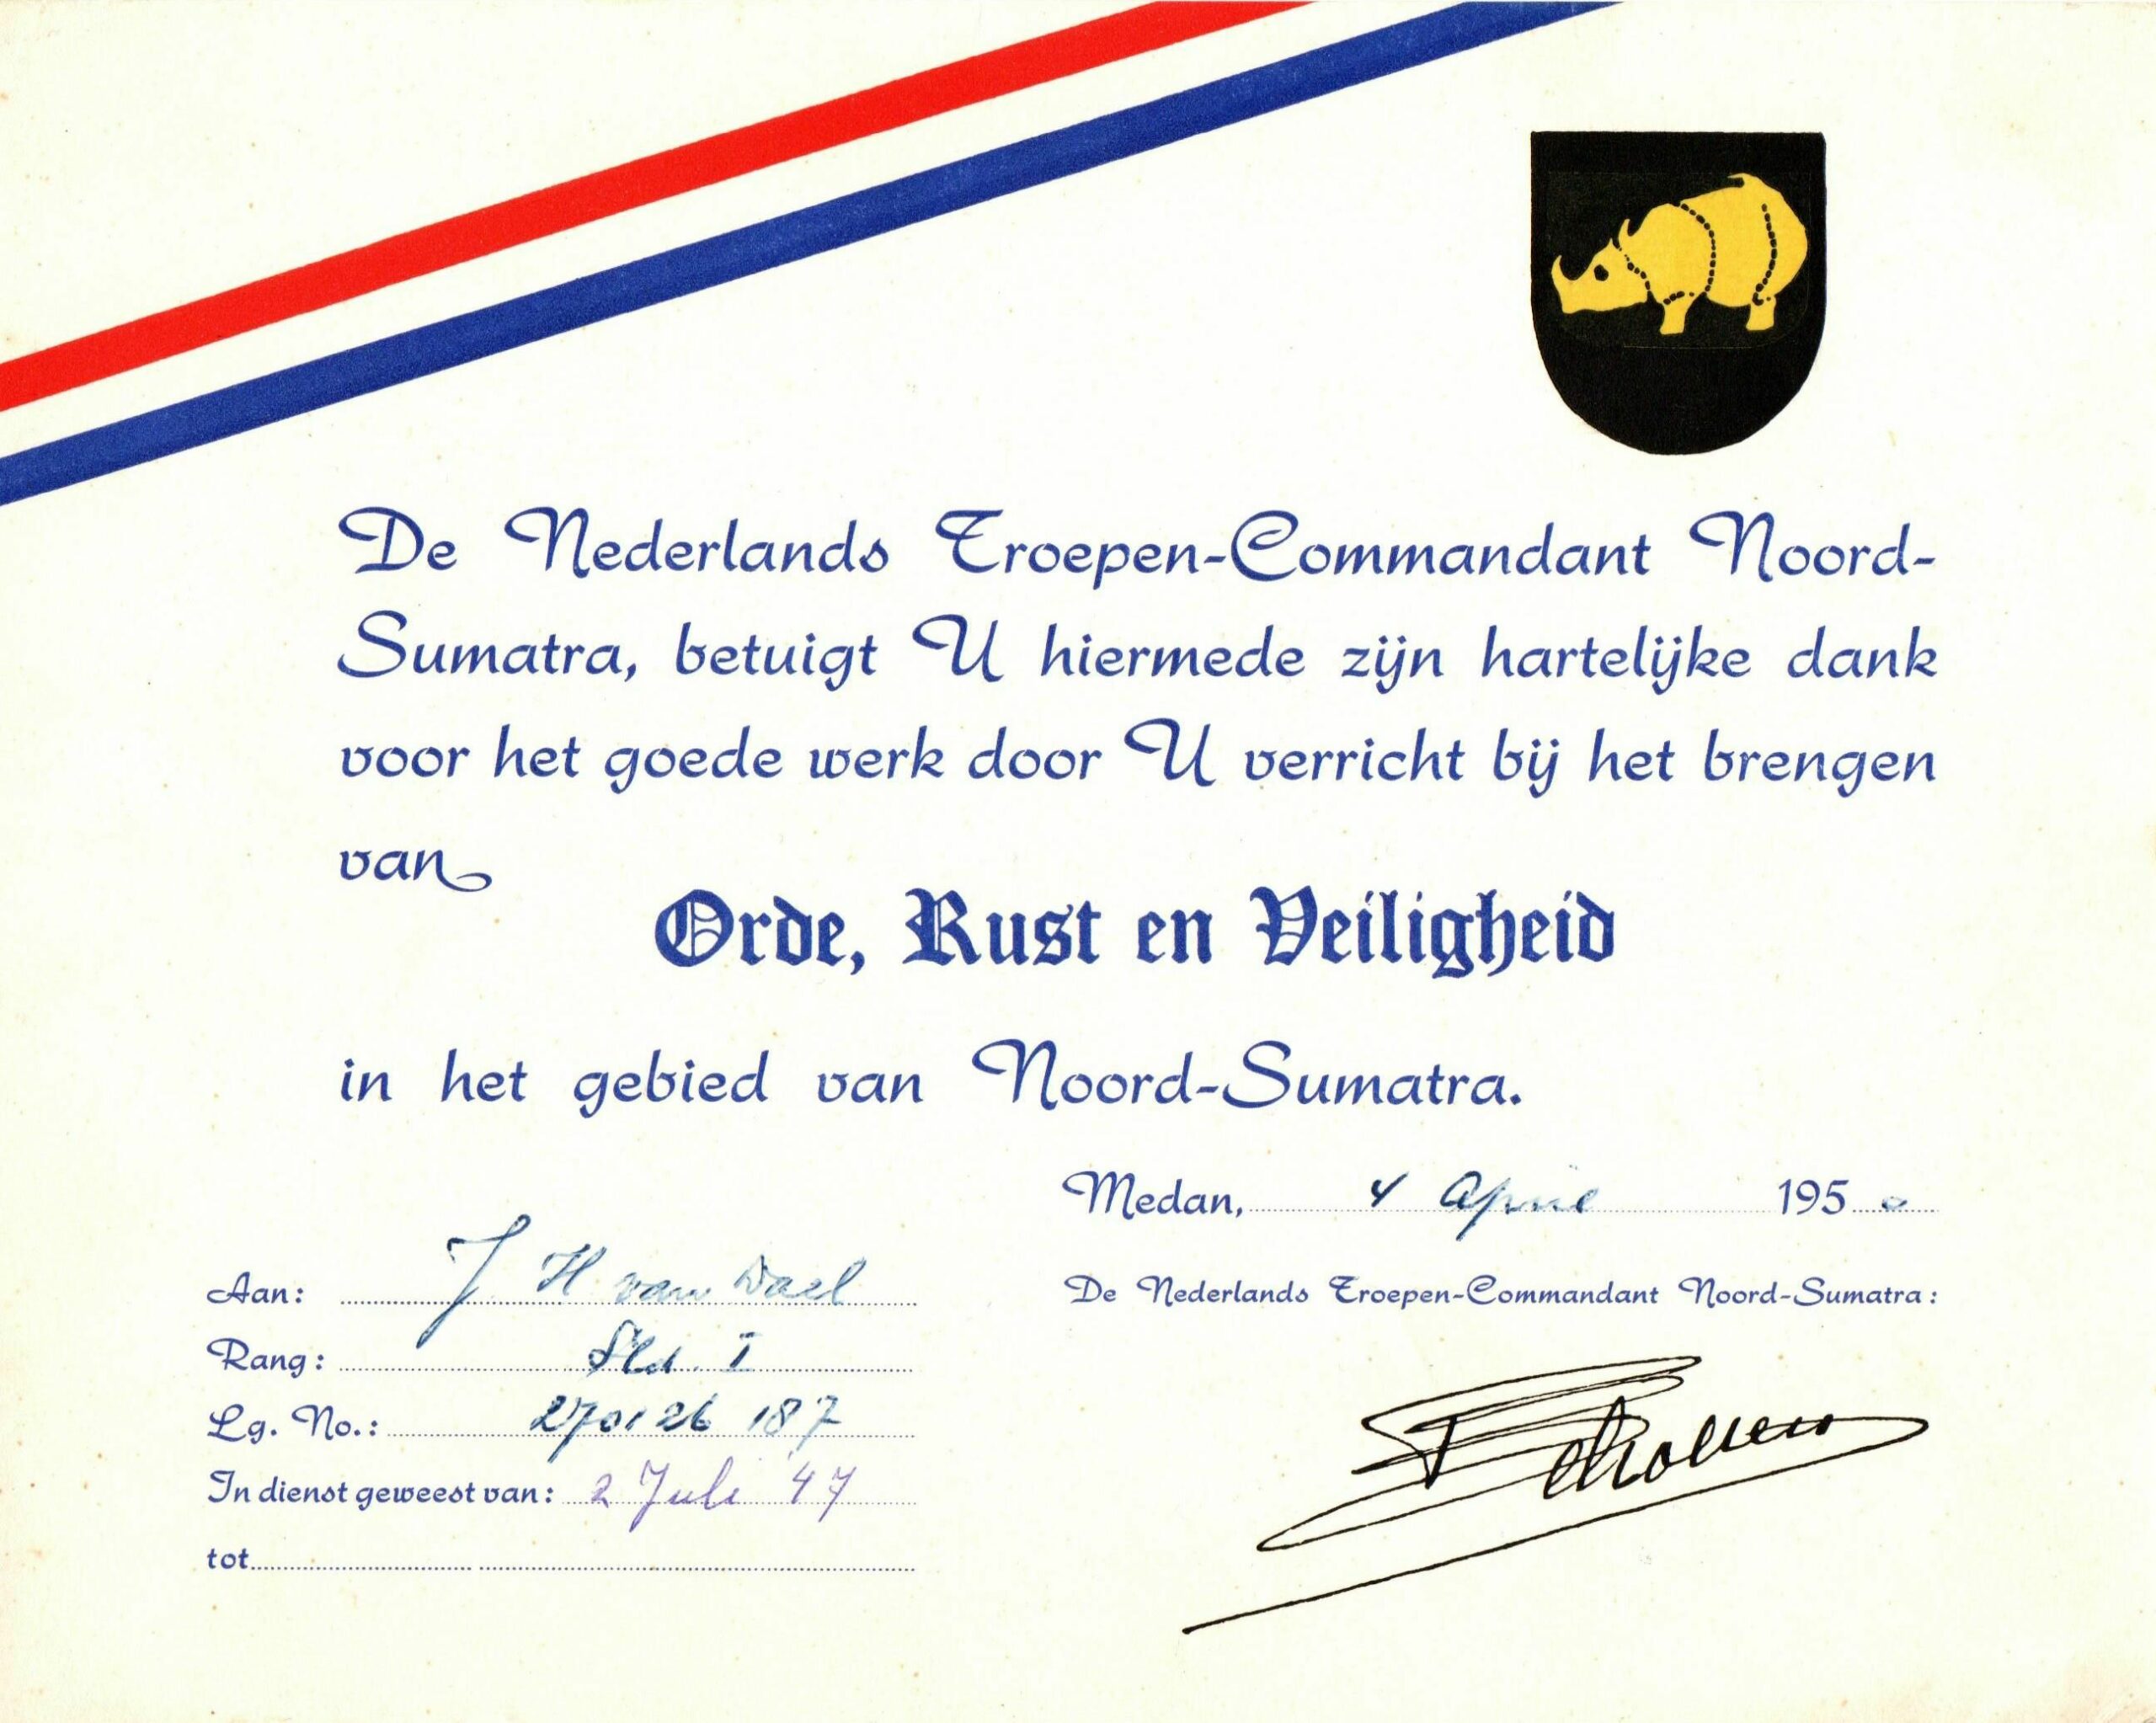 De Nederlands Troepen-Commandant Noord-
Sumatra, betuigt U hiermede zijn hartelijke dank
voor het goede werk door U verricht bij het brengen
van
Orde, Rust en Veiligheid
in het gebied van Noord-Sumatra.
Medan, 4 April 1950
Aan: J H van Dael
De Nederlands Troepen-Commandant Noord-Sumatra:
Rang: Sld. I
Lg. No.: 270126 187
In dienst geweest van: 2 Juli 47
tot